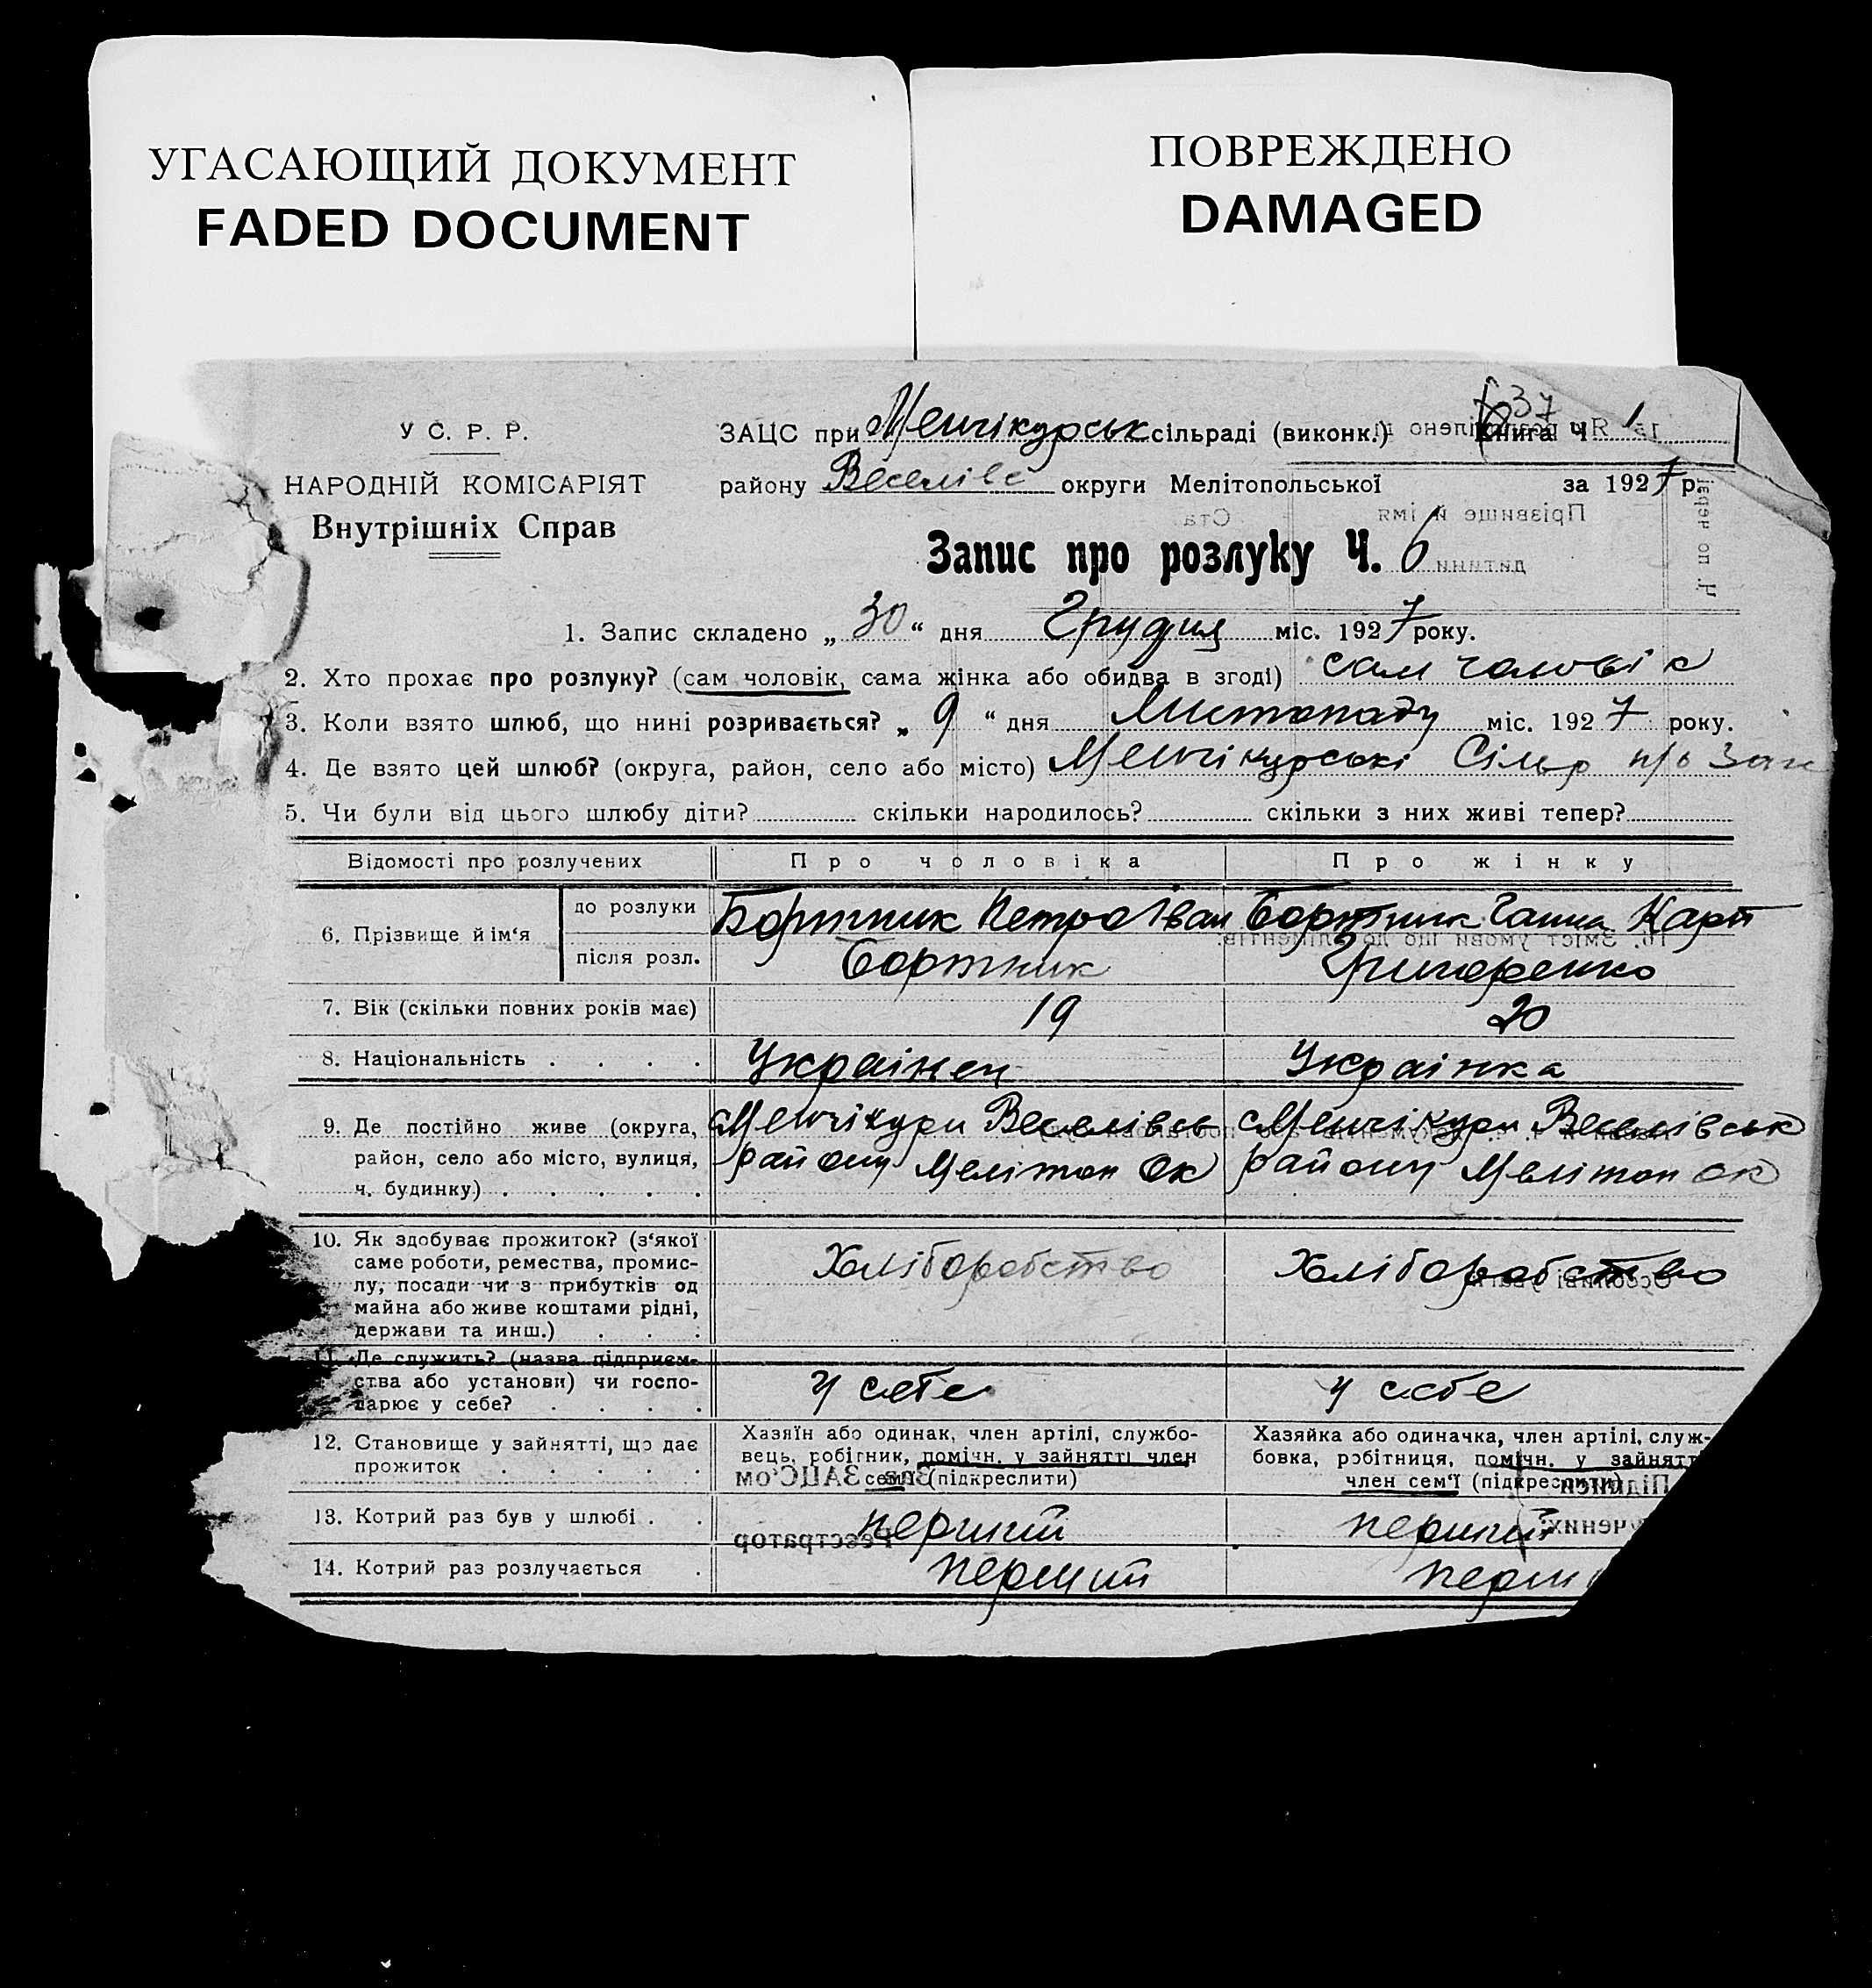 УГАСАЮЩИЙ ДОКУМЕНТ
FADED DOCUMENT
ПОВРЕЖДЕНО
DAMAGED
У С. Р. Р.
НАРОДНІЙ КОМІСАРІЯТ
Внутрішніх Справ
37
ЗАЦС при Менчікурськ сільраді (виконк.) Книга Ч 1
району Веселівс округи Мелітопольської за 1927 р.
Запис про розлуку Ч. 6
1. Запис складено „ 30 “ дня Грудня міс. 1927 року.
2. Хто прохає про розлуку? (сам чоловік, сама жінка або обидва в згоді) сам чоловік
3. Коли взято шлюб, що нині розривається? „ 9 “ дня Листопаду міс. 1927 року.
4. Де взято цей шлюб? (округа, район, село або місто) Менчікурські Сільр
5. Чи були від цього шлюбу діти? скільки народилось? скільки з них живі тепер?
Відомості про розлучених Про чоловіка Про жінку
6. Прізвище й ім‘я до розлуки Бортник Петро Іван Бортник Ганна Карп
після розл. Бортник Григоренко
7. Вік (скільки повних років має) 19 20
8. Національність . . . . Украінец Украінка
9. Де постійно живе (округа, район, село або місто, вулиця, ч. будинку) . . . . .
Менчікури Веселівсь
району Мелітоп Ок
Менчікури Веселівськ
району Мелітоп ок
10. Як здобуває прожиток? (з‘якої
саме роботи, ремества, промис-
лу, посади чи з прибутків од
майна або живе коштами рідні,
держави та инш.) . . .
Хліборобство Хліборобство
11. Де служить? (назва підприєм-
ства або установи) чи госпо-
дарює у себе? . . . .
у себе у себе
12. Становище у зайнятті, що дає
прожиток . . . . .
Хазяїн або одинак, член артілі, службо-
вець, робітник, помічн. у зайнятті член
сем‘ї (підкреслити)
Хазяйка або одиначка, член артілі, служ-
бовка, робітниця, помічн. у зайнятт
член сем‘ї (підкреслити)
13. Котрий раз був у шлюбі . . перший перший
14. Котрий раз розлучається . перший перши